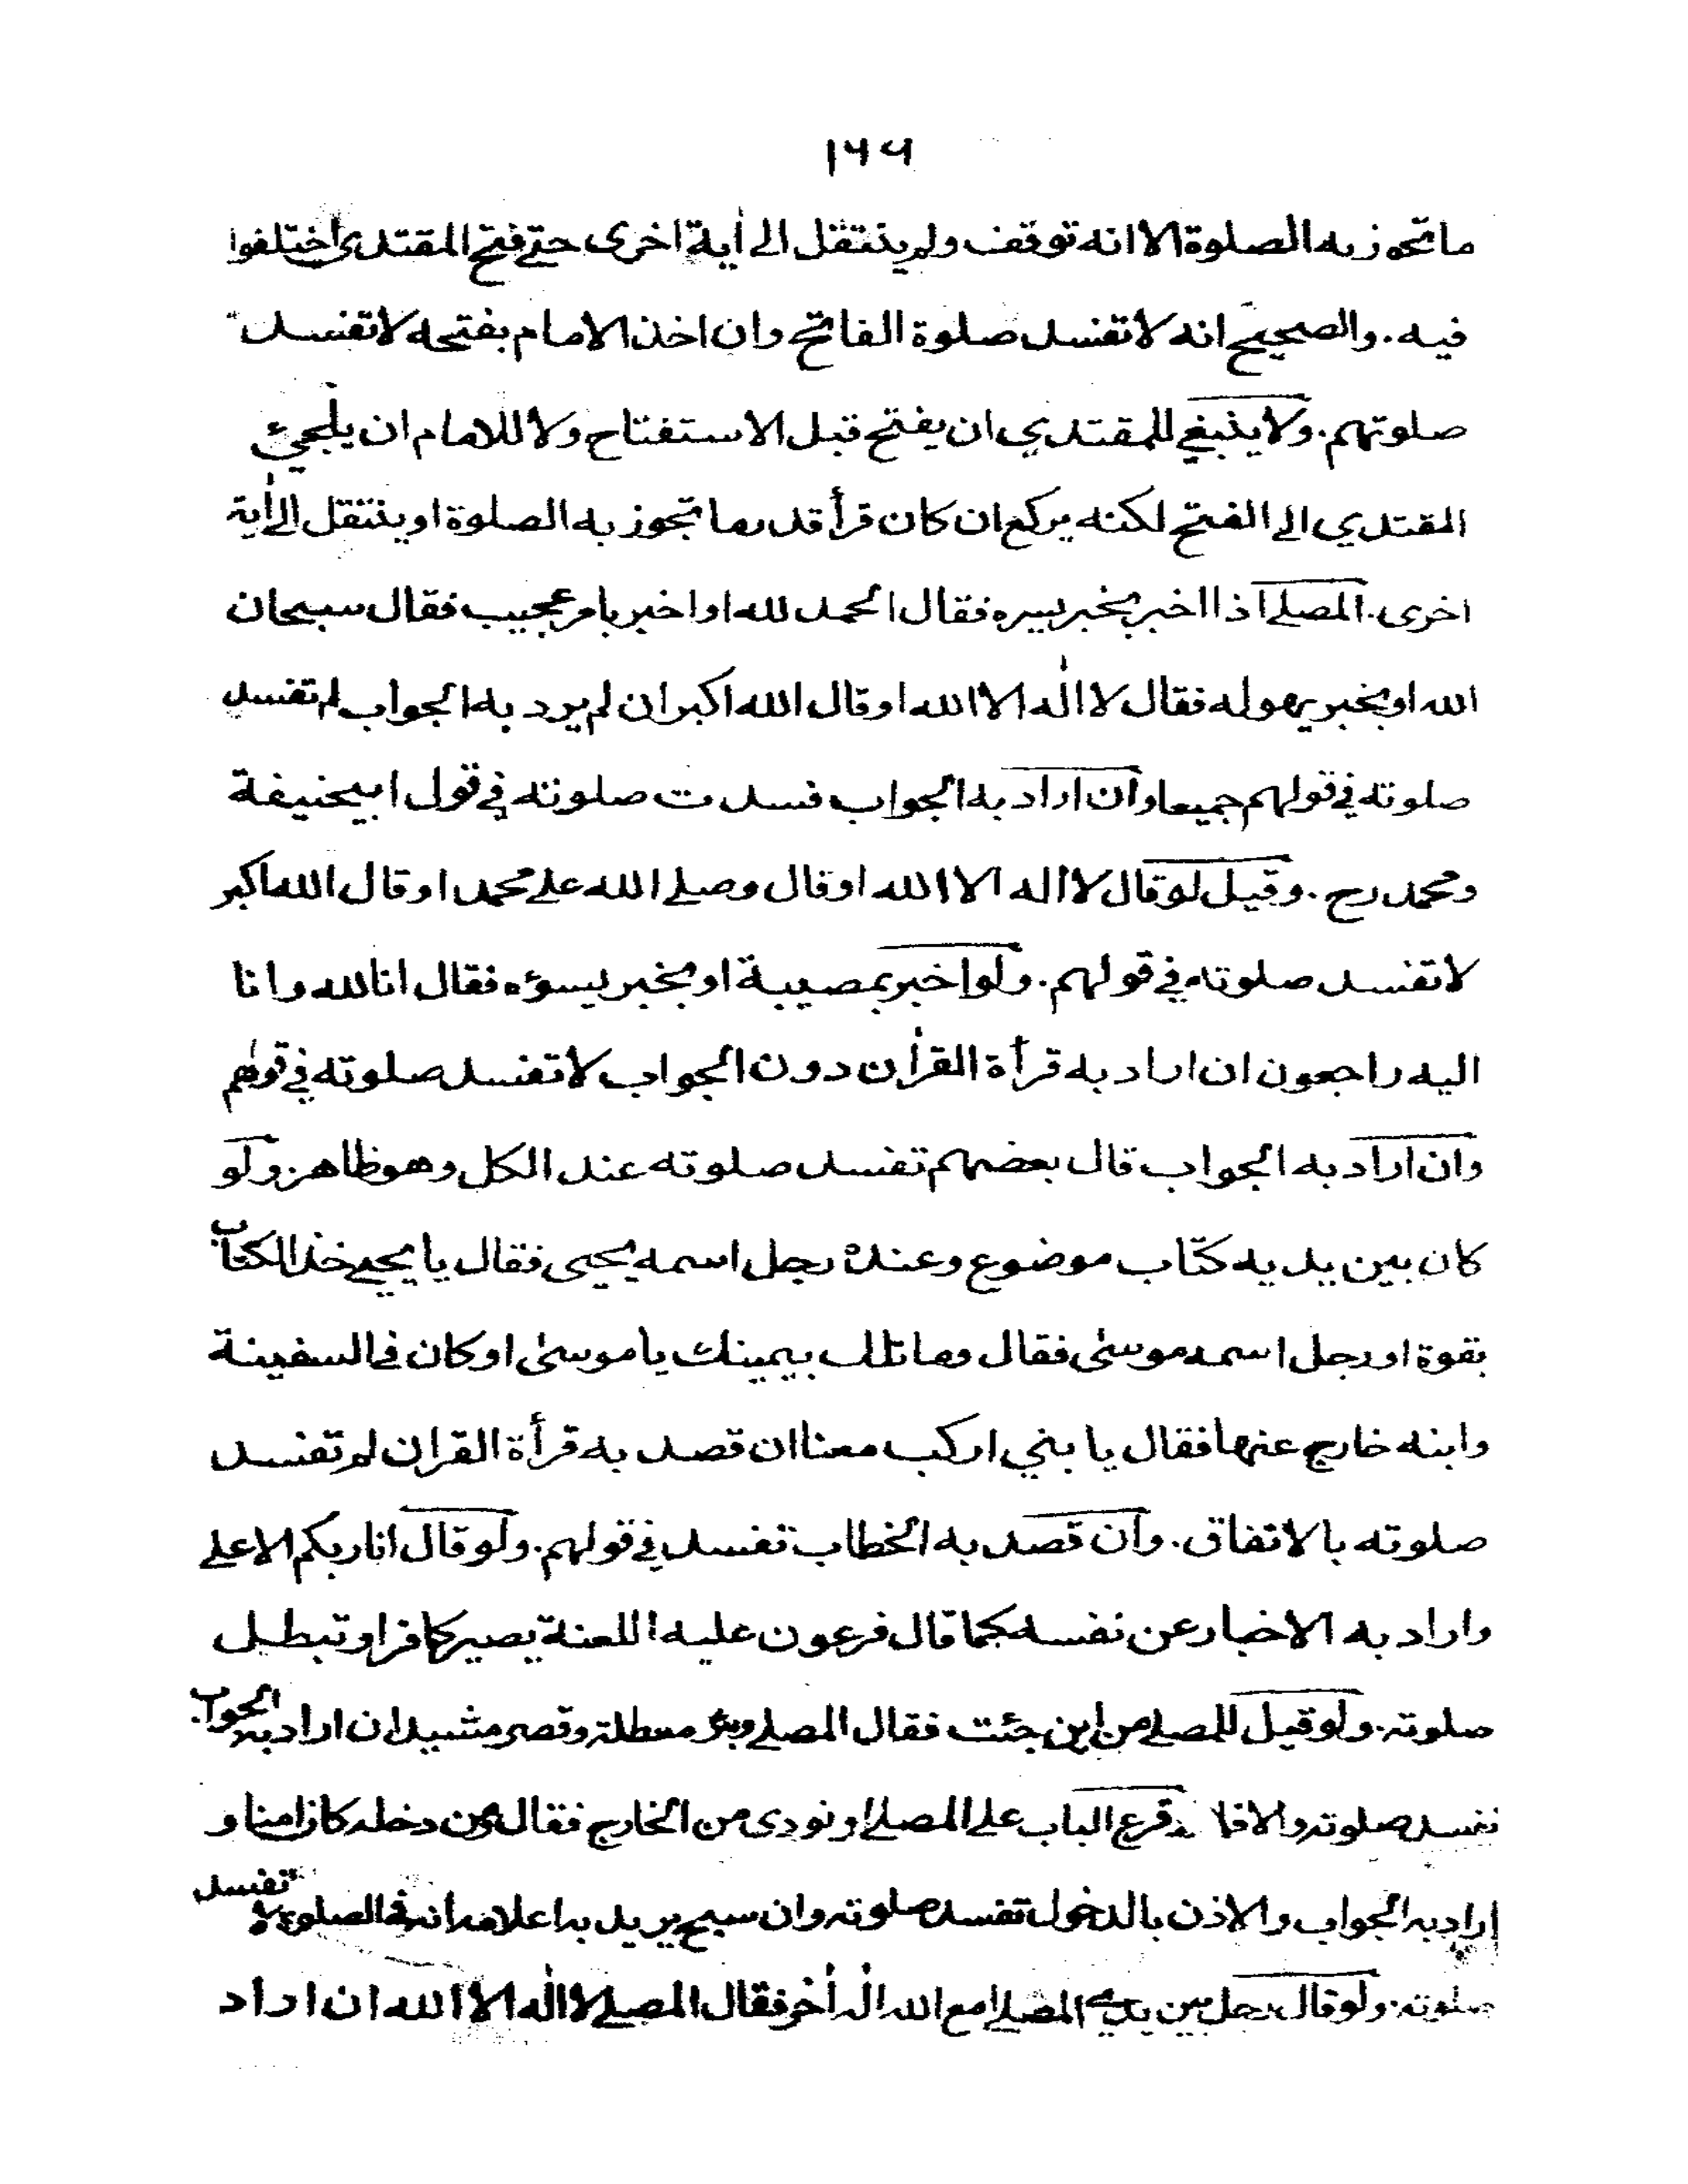 ١٦٦
ما تجوز به الصلوة الا انه توقف ولم ينتقل الى أية اخرى حتے فتح المقتدى اختلفوا
فيه. والصحيح انه لا تفسد صلوة الفاتح وان اخذ الامام بفتحه لا تفسد
صلوتهم. ولا ينبغي للمقتدي ان يفتح قبل الاستفتاح ولا للامام ان يلجئ
المقتدي الى الفتح لكنه يركع ان كان قرأ قدر ما تجوز به الصلوة او ينتقل الى أية
اخرى. المصلے اذا اخبر بخبر يسره فقال الحمد لله او اخبر بامر عجيب فقال سبحان
الله او بخبر يهوله فقال لا اله الا الله او قال الله اكبر ان لم يرد به الجواب لم تفسد
صلوته في قولهم جميعا وان اراد به الجواب فسدت صلوته في قول ابيحنيفة
ومحمد رح. وقيل لو قال لا اله الا الله او قال وصلے الله علے محمد او قال الله اكبر
لا تفسد صلوته في قولهم. ولو اخبر بمصيبة او بخبر يسوءه فقال انا لله وانا
اليه راجعون ان اراد به قرأة القرأن دون الجواب لا تفسد صلوته في قولهم
وان اراد به الجواب قال بعضهم تفسد صلوته عند الكل وهو ظاهر. ولو
كان بين يديه كتاب موضوع وعنده رجل اسمه يحيى فقال يا يحيے خذ الكتاب
بقوة او رجل اسمه موسٰى فقال وما تلك بيمينك يا موسٰى او كان في السفينة
وابنه خارج عنها فقال يا بني اركب معنا ان قصد به قرأة القران لم تفسد
صلوته بالاتفاق. وان قصد به الخطاب تفسد في قولهم. ولو قال انا ربكم الاعلے
واراد به الاخبار عن نفسه كما قال فرعون عليه اللعنة يصير كافرا وتبطل
صلوته. ولو قيل للمصلے من اين جئت فقال المصلے وبئر معطلة وقصر مشيد ان اراد به الجواب
تفسد صلوته والا فلا قرع الباب على المصلے او نودى من الخارج فقال ومن دخله كان امنا و
اراد به الجواب والاذن بالدخول تفسد صلوته وان سبح يريد به اعلامه انه في الصلوة لا تفسد
صلوته. ولو قال رجل بين يدي المصلے امع الله اله أخر فقال المصلے لا اله الا الله ان اراد